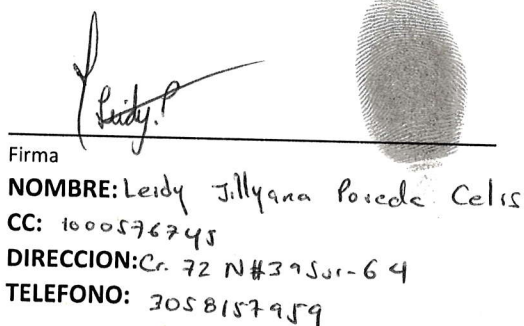 Leidy.P
Firma
NOMBRE: Leidy Jillyana Poveda Celis
CC: 1000576745
DIRECCION: Cr. 72 N#39Sur-64
TELEFONO: 3058157959